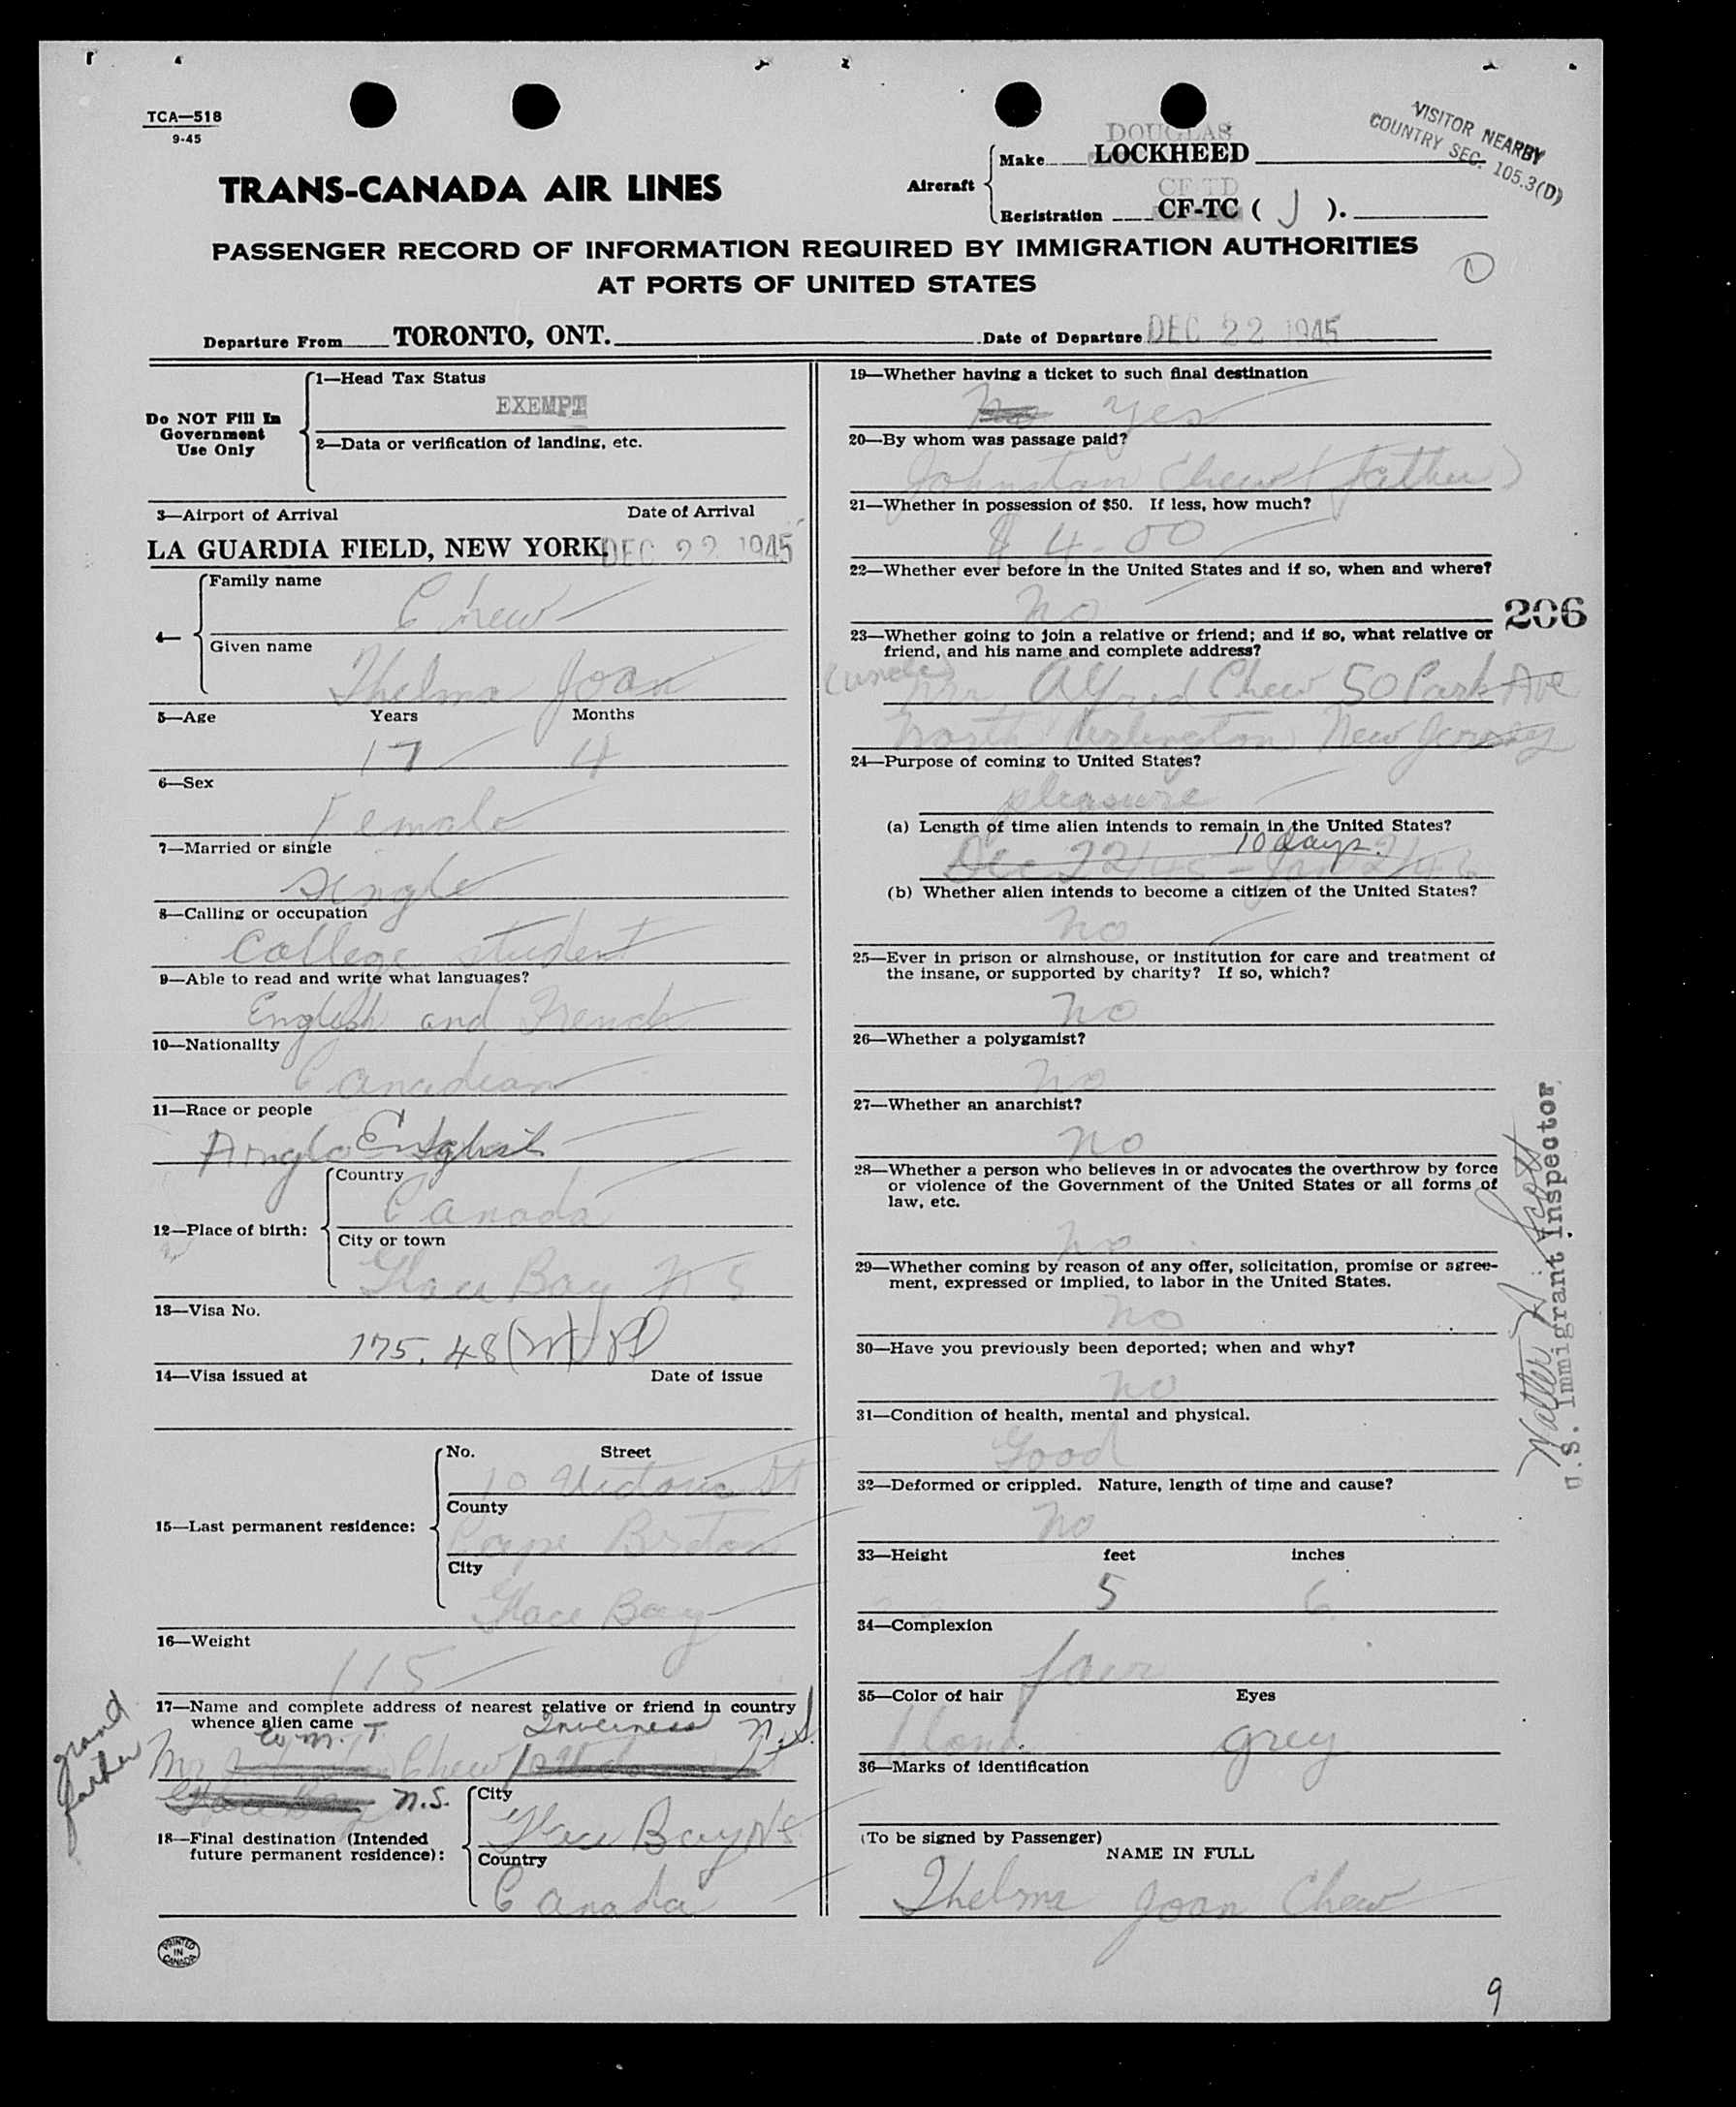 TCA—518
9-45
VISITOR NEARBY
COUNTRY SEC. 105.3(D)
DOUGLAS
Aircraft
Make LOCKHEED
CF-TD
Registration CF-TC ( J ).
TRANS-CANADA AIR LINES
PASSENGER RECORD OF INFORMATION REQUIRED BY IMMIGRATION AUTHORITIES
AT PORTS OF UNITED STATES
Departure From TORONTO, ONT. Date of Departure DEC 22 1945
Do NOT Fill In
Government
Use Only
1—Head Tax Status
EXEMPT
2—Data or verification of landing, etc.
3—Airport of Arrival Date of Arrival
LA GUARDIA FIELD, NEW YORK. DEC 22 1945
4—
Family name
Chew
Given name
Thelma Joan
5—Age Years Months
17 4
6—Sex
Female
7—Married or single
Single
8—Calling or occupation
College student
9—Able to read and write what languages?
English and French
10—Nationality
Canadian
11—Race or people
Anglo English
12—Place of birth:
Country
Canada
City or town
Glace Bay N S
13—Visa No.
175.48
14—Visa issued at Date of issue
15—Last permanent residence:
No. Street
10 Victoria St
County
Cape Breton
City
Glace Bay
16—Weight
115
17—Name and complete address of nearest relative or friend in country
whence alien came
Wm. T. Inverness N.S.
Mr Chew
grand
father
N.S.
18—Final destination (Intended
future permanent residence):
City
Glace Bay NS
Country
Canada
PRINTED
IN
CANADA
19—Whether having a ticket to such final destination
No Yes
20—By whom was passage paid?
Johnston Chew (father)
21—Whether in possession of $50. If less, how much?
$ 4.00
22—Whether ever before in the United States and if so, when and where?
No
206
23—Whether going to join a relative or friend; and if so, what relative or
friend, and his name and complete address?
(uncle) Mr. Alfred Chew 50 Park Ave
North Arlington New Jersey
24—Purpose of coming to United States?
pleasure
(a) Length of time alien intends to remain in the United States?
10 days.
Dec 22/45 – Jan 2/46
(b) Whether alien intends to become a citizen of the United States?
no
25—Ever in prison or almshouse, or institution for care and treatment of
the insane, or supported by charity? If so, which?
no
26—Whether a polygamist?
no
27—Whether an anarchist?
no
28—Whether a person who believes in or advocates the overthrow by force
or violence of the Government of the United States or all forms of
law, etc.
no
29—Whether coming by reason of any offer, solicitation, promise or agree-
ment, expressed or implied, to labor in the United States.
no
30—Have you previously been deported; when and why?
no
31—Condition of health, mental and physical.
Good
32—Deformed or crippled. Nature, length of time and cause?
No
33—Height feet inches
5 6
34—Complexion
fair
35—Color of hair Eyes
blond grey
36—Marks of identification
(To be signed by Passenger)
NAME IN FULL
Thelma Joan Chew
Walter A Scott
U.S. Immigrant Inspector
9